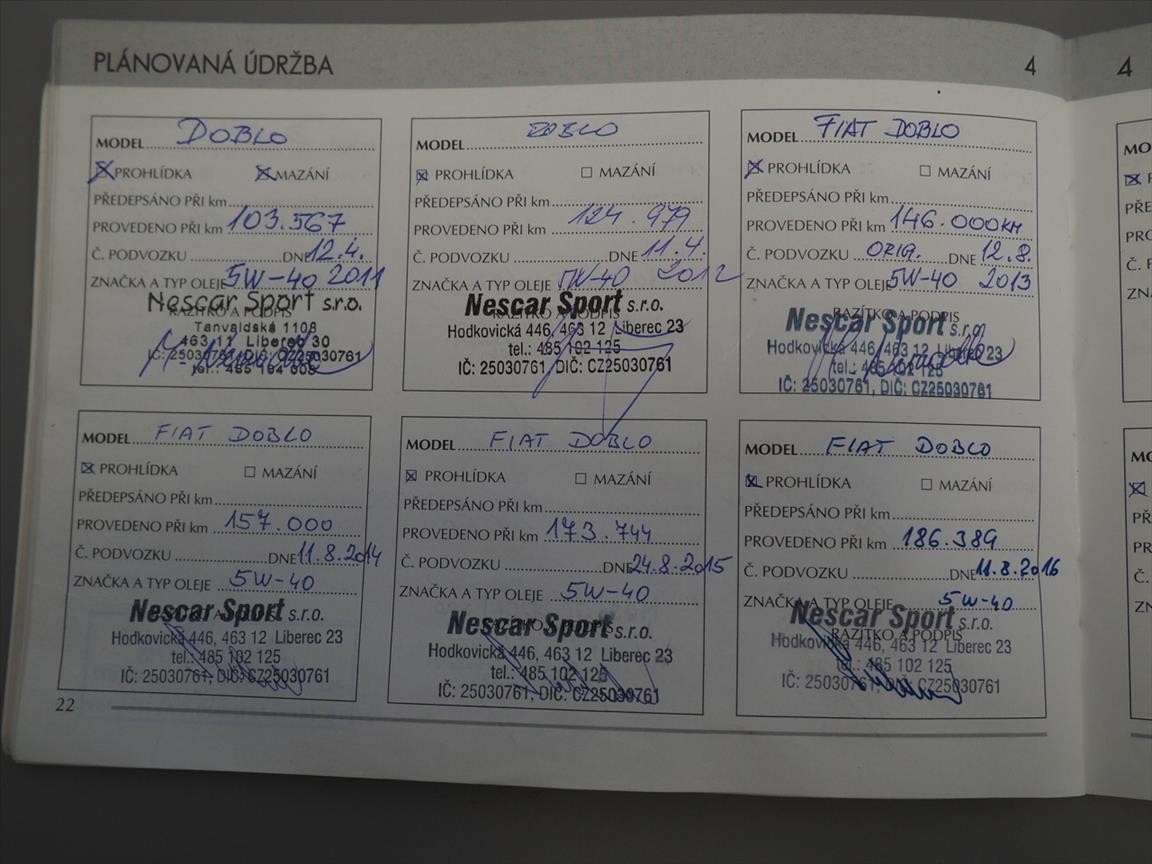 PLÁNOVANÁ ÚDRŽBA 4
MODEL DOBLO
☒ PROHLÍDKA ☒ MAZÁNÍ
PŘEDEPSÁNO PŘI km
PROVEDENO PŘI km 103.567
Č. PODVOZKU DNE 12.4.
ZNAČKA A TYP OLEJE 5W-40 2011
RAZÍTKO A PODPIS
Nescar Sport s.r.o.
Tanvaldská 1108
463 11 Liberec 30
IČ: 25030761, DIČ: CZ25030761
tel.: 485 164 008
MODEL DOBLO
☒ PROHLÍDKA ☐ MAZÁNÍ
PŘEDEPSÁNO PŘI km
PROVEDENO PŘI km 124.979
Č. PODVOZKU DNE 11.4.
ZNAČKA A TYP OLEJE 2012
RAZÍTKO A PODPIS
Nescar Sport s.r.o.
Hodkovická 446, 463 12 Liberec 23
tel.: 485 102 125
IČ: 25030761, DIČ: CZ25030761
MODEL FIAT DOBLO
☒ PROHLÍDKA ☐ MAZÁNÍ
PŘEDEPSÁNO PŘI km
PROVEDENO PŘI km 146.000KM
Č. PODVOZKU ORIG. DNE 12.8.
ZNAČKA A TYP OLEJE 5W-40 2013
RAZÍTKO A PODPIS
Nescar Sport s.r.o.
Hodkovická 446, 463 12 Liberec 23
tel.: 485 102 125
IČ: 25030761, DIČ: CZ25030761
MODEL FIAT DOBLO
☒ PROHLÍDKA ☐ MAZÁNÍ
PŘEDEPSÁNO PŘI km
PROVEDENO PŘI km 157.000
Č. PODVOZKU DNE 11.8.2014
ZNAČKA A TYP OLEJE 5W-40
Nescar Sport s.r.o.
Hodkovická 446, 463 12 Liberec 23
tel.: 485 102 125
IČ: 25030761, DIČ: CZ25030761
MODEL FIAT DOBLO
☒ PROHLÍDKA ☐ MAZÁNÍ
PŘEDEPSÁNO PŘI km
PROVEDENO PŘI km 173.744
Č. PODVOZKU DNE 24.8.2015
ZNAČKA A TYP OLEJE 5W-40
RAZÍTKO A PODPIS
Nescar Sport s.r.o.
Hodkovická 446, 463 12 Liberec 23
tel.: 485 102 125
IČ: 25030761, DIČ: CZ25030761
MODEL FIAT DOBLO
☒ PROHLÍDKA ☐ MAZÁNÍ
PŘEDEPSÁNO PŘI km
PROVEDENO PŘI km 186.389
Č. PODVOZKU DNE 11.8.2016
ZNAČKA A TYP OLEJE 5W-40
RAZÍTKO A PODPIS
Nescar Sport s.r.o.
Hodkovická 446, 463 12 Liberec 23
tel.: 485 102 125
IČ: 25030761, DIČ: CZ25030761
22
4